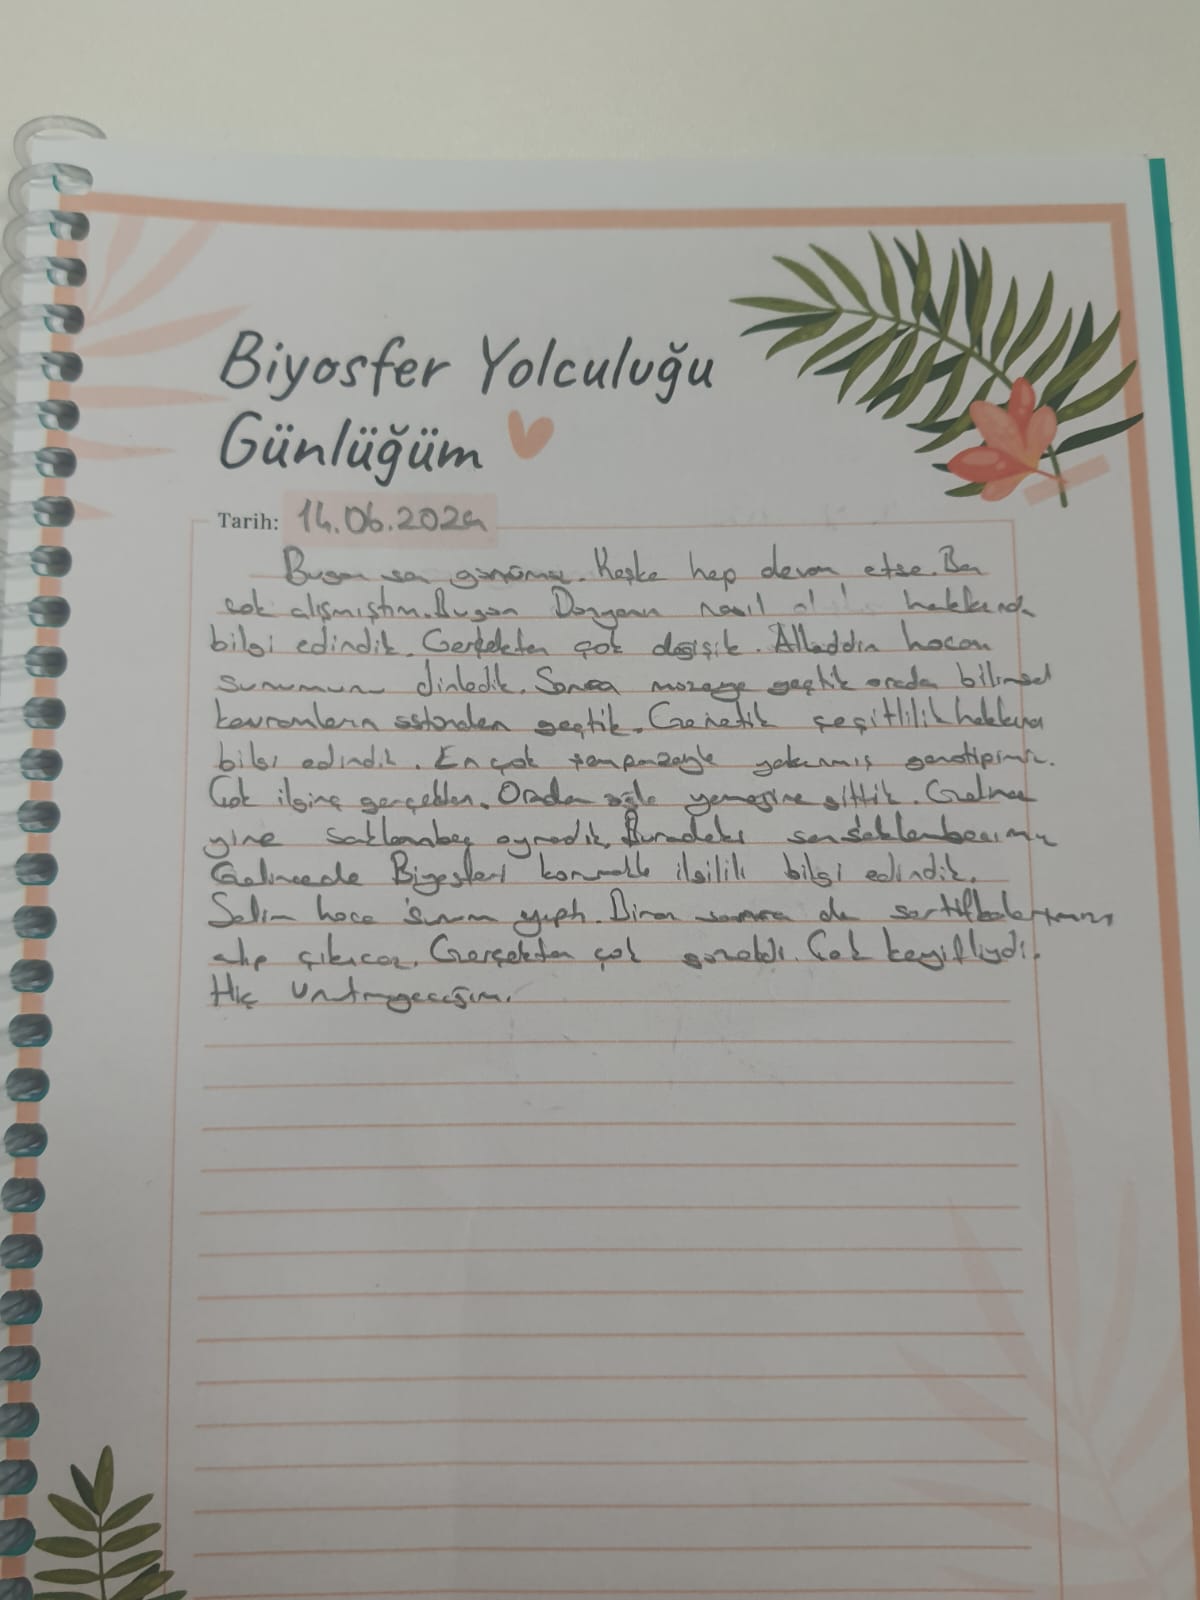 Biyosfer Yolculuğu
Günlüğüm
Tarih: 14.06.2024
Bugün son günümüz. Keşke hep devam etse. Ben
çok alışmıştım. Bugün Dünyanın nasıl hakkında
bilgi edindik. Gerçekten çok değişik. Alladdin hocan
sunumunu dinledik. Sonra müzeye geçtik orada bilimsel
kavramların üstünden geçtik. Genetik çeşitlilik hakkına
bilgi edindik. En çok şempazeyle yakınmış genotipimiz.
Çok ilginç gerçekten. Oradan öğle yemeğine gittik. Gelince
yine saklambaç oynadık. Buradaki son saklambacımız
Gelincede Biyosferi korumakla ilgilili bilgi edindik.
Selim hoca sunum yaptı. Biraz sonra da sertifikalarımızı
alıp çıkıcaz. Gerçekten çok güzeldi. Çok keyifliydi.
Hiç unutmayacağım.